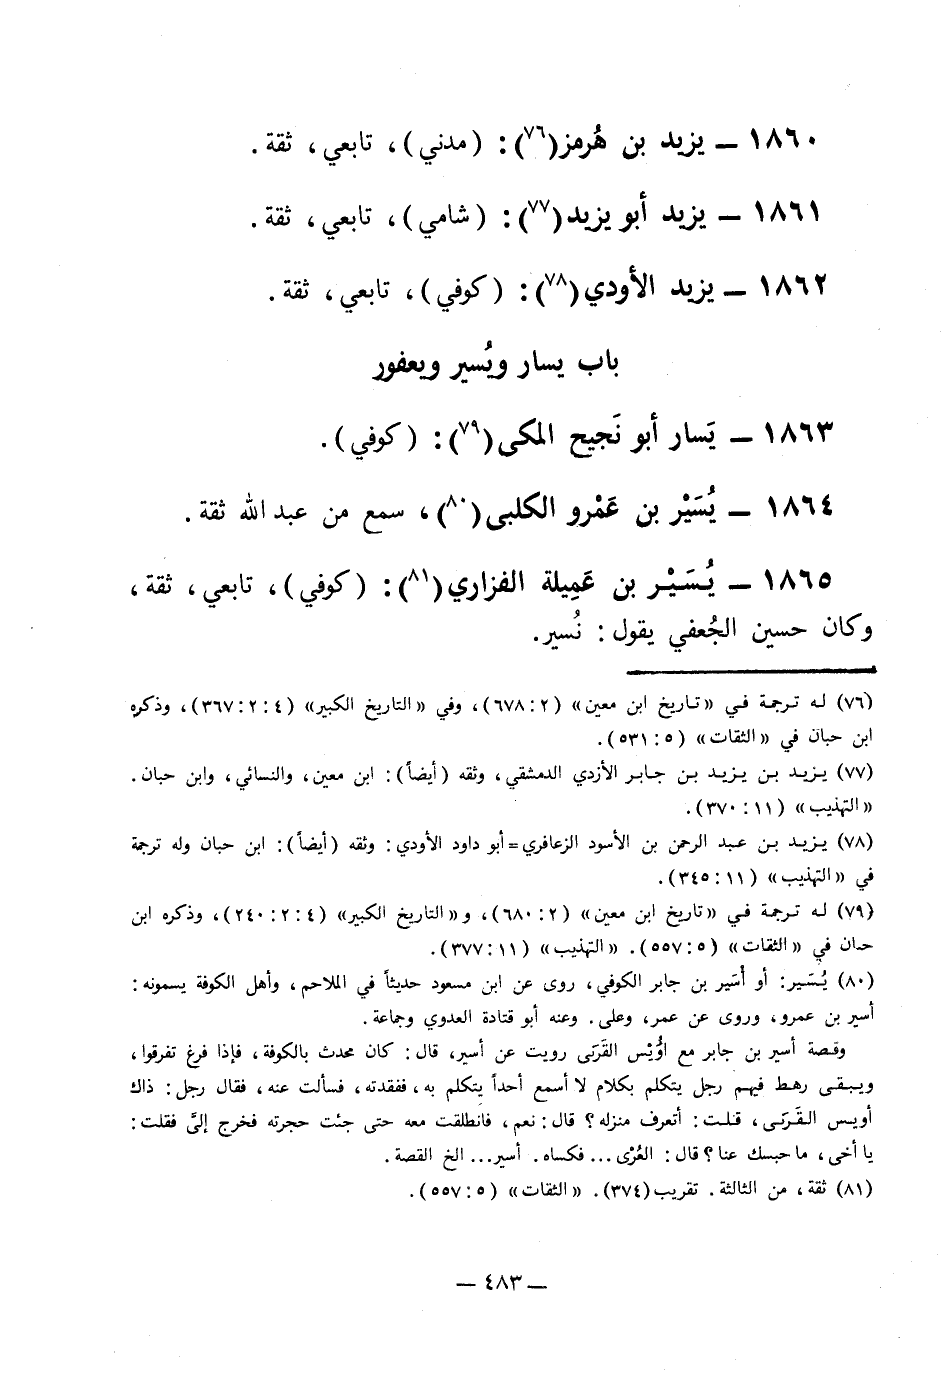 ١٨٦٠ ــ يزيد بن هُرمز(٧٦): (مدني)، تابعي، ثقة.
١٨٦١ ــ يزيد أبو يزيد(٧٧): (شامي)، تابعي، ثقة.
١٨٦٢ ــ يزيد الأودي(٧٨): (كوفي)، تابعي، ثقة.
باب يسار ويُسير ويعفور
١٨٦٣ ــ يَسار أبو نَجيح المكى(٧٩): (كوفي).
١٨٦٤ ــ يُسَيْر بن عَمْرو الكلبى(٨٠)، سمع من عبد الله ثقة.
١٨٦٥ ــ يُسَيْر بن عَمِيلة الفزاري(٨١): (كوفي)، تابعي، ثقة،
وكان حسين الجُعفي يقول: نُسير.
(٧٦) له ترجمة في «تاريخ ابن معين» (٢: ٦٧٨)، وفي «التاريخ الكبير» (٤: ٢: ٣٦٧)، وذكره
ابن حبان في «الثقات» (٥: ٥٣١).
(٧٧) يزيد بن يزيد بن جابر الأزدي الدمشقي، وثقه (أيضاً): ابن معين، والنسائي، وابن حبان.
«التهذيب» (١١: ٣٧٠).
(٧٨) يزيد بن عبد الرحمن بن الأسود الزعافري=أبو داود الأودي: وثقه (أيضاً): ابن حبان وله ترجمة
في «التهذيب» (١١: ٣٤٥).
(٧٩) له ترجمة في «تاريخ ابن معين» (٢: ٦٨٠)، و«التاريخ الكبير» (٤: ٢: ٢٤٠)، وذكره ابن
حبان في «الثقات» (٥: ٥٥٧). «التهذيب» (١١: ٣٧٧).
(٨٠) يُسَير: أو أُسَير بن جابر الكوفي، روى عن ابن مسعود حديثاً في الملاحم، وأهل الكوفة يسمونه:
أسير بن عمرو، وروى عن عمر، وعلى. وعنه أبو قتادة العدوي وجماعة.
وقصة أسير بن جابر مع أوُيْس القَرَنى رويت عن أسير، قال: كان محدث بالكوفة، فإذا فرغ تفرقوا،
ويبقى رهط فيهم رجل يتكلم بكلام لا أسمع أحداً يتكلم به، ففقدته، فسألت عنه، فقال رجل: ذاك
أويس القَرَنى، قلت: أتعرف منزله؟ قال: نعم، فانطلقت معه حتى جئت حجرته فخرج إلىَّ فقلت:
يا أخى، ما حبسك عنا؟ قال: العُرْى... فكساه. أسير... الخ القصة.
(٨١) ثقة، من الثالثة. تقريب(٣٧٤). «الثقات» (٥: ٥٥٧).
ــ ٤٨٣ ــ